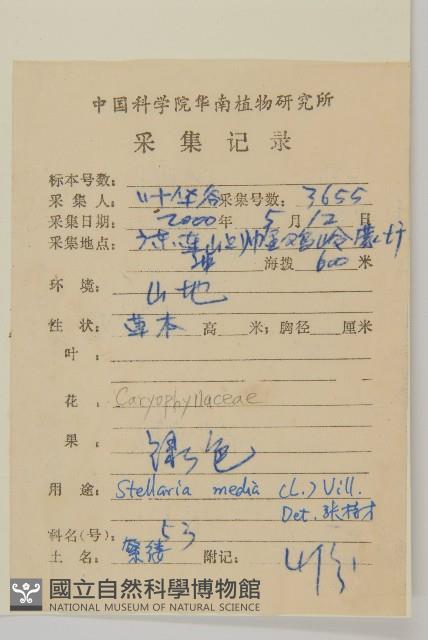 中国科学院华南植物研究所
采集记录
标本号数：
采集人：叶华谷 采集号数：3655
采集日期：2000年5月12日
采集地点：广东连山上帅
海拨 600 米
环境：山地
性状：草本 高 米；胸径 厘米
叶：
花：Caryophyllaceae
果：绿色
用途：Stellaria media (L.) Vill.
Det. 张
科名(号)：53
土名：繁缕 附记：4份
國立自然科學博物館
NATIONAL MUSEUM OF NATURAL SCIENCE